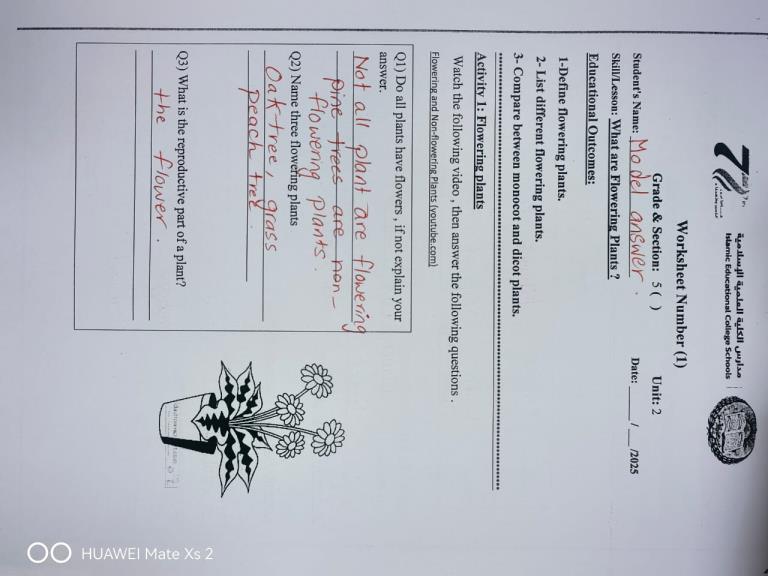 مدارس الكلية العلمية الإسلامية
Islamic Educational College Schools
Worksheet Number (1)
Grade & Section: 5 ( ) Unit: 2
Student's Name: Model answer. Date: ____ / __ /2025
Skill/Lesson: What are Flowering Plants ?
Educational Outcomes:
1-Define flowering plants.
2- List different flowering plants.
3- Compare between monocot and dicot plants.
Activity 1: Flowering plants
Watch the following video , then answer the following questions .
Flowering and Non-flowering Plants (youtube.com)
Q1) Do all plants have flowers , if not explain your
answer.
Not all plant are flowering
pine trees are non-
flowering plants.
Q2) Name three flowering plants
Oak tree, grass
peach tree.
Q3) What is the reproductive part of a plant?
the flower.
HUAWEI Mate Xs 2